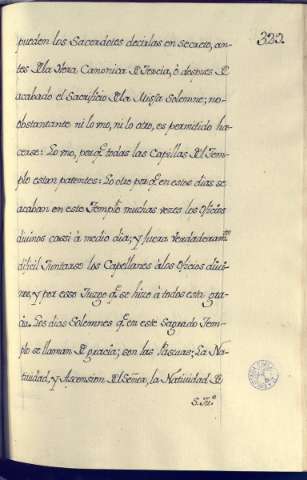 322.
pueden los Sacerdotes decirlas en secreto, an-
tes de la Hora Canonica de Tercia, ò despues de
acabado el Sacrificio de la Missa Solemne; no-
obstantante ni lo mo, ni lo otro, es permitido ha-
cerse: Lo mo, porq.e todas las Capillas del Tem-
plo estan patentes: Lo otro porq.e en estos dias se
acaban en este Templo muchas vezes los Oficios
divinos cassi à medio dia; y fuera verdaderam.te
dificil Juntarse los Capellanes à los Oficios divi-
nos, y por esso Juzgo q.e se hizo à todos esta gra-
cia. Los dias Solemnes q.e en este Sagrado Tem-
plo se llaman de gracia; son las Pascuas; La Na-
tividad, y Ascension del Señor, la Natividad de
S. Ju.n